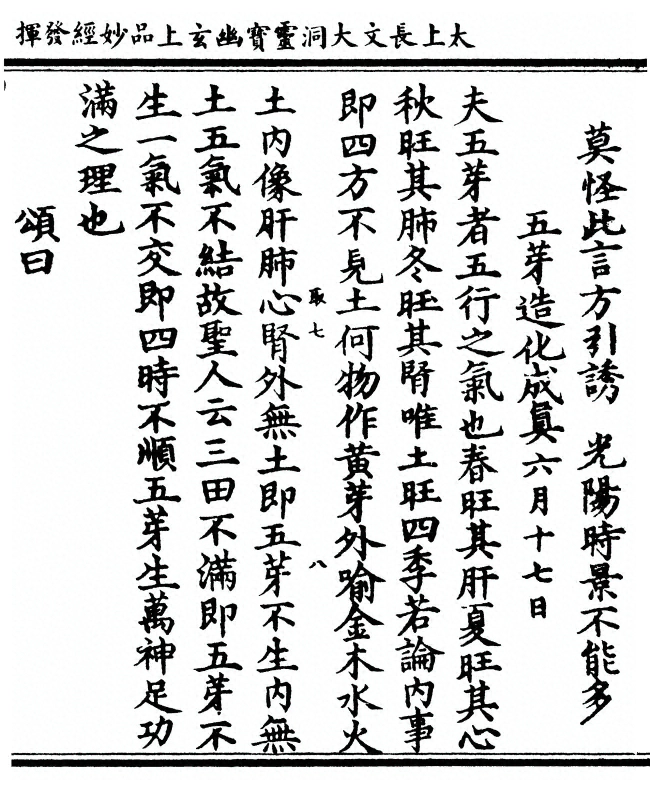 太上長文大洞靈寶幽玄上品妙經發揮
莫怪此言方引誘　光陽時景不能多
五芽造化成真六月十七日
夫五芽者五行之氣也春旺其肝夏旺其心
秋旺其肺冬旺其腎唯土旺四季若論內事
即四方不見土何物作黃芽外喻金木水火
取七　八
土內像肝肺心腎外無土即五芽不生內無
土五氣不結故聖人云三田不滿即五芽不
生一氣不交即四時不順五芽生萬神足功
滿之理也
頌曰